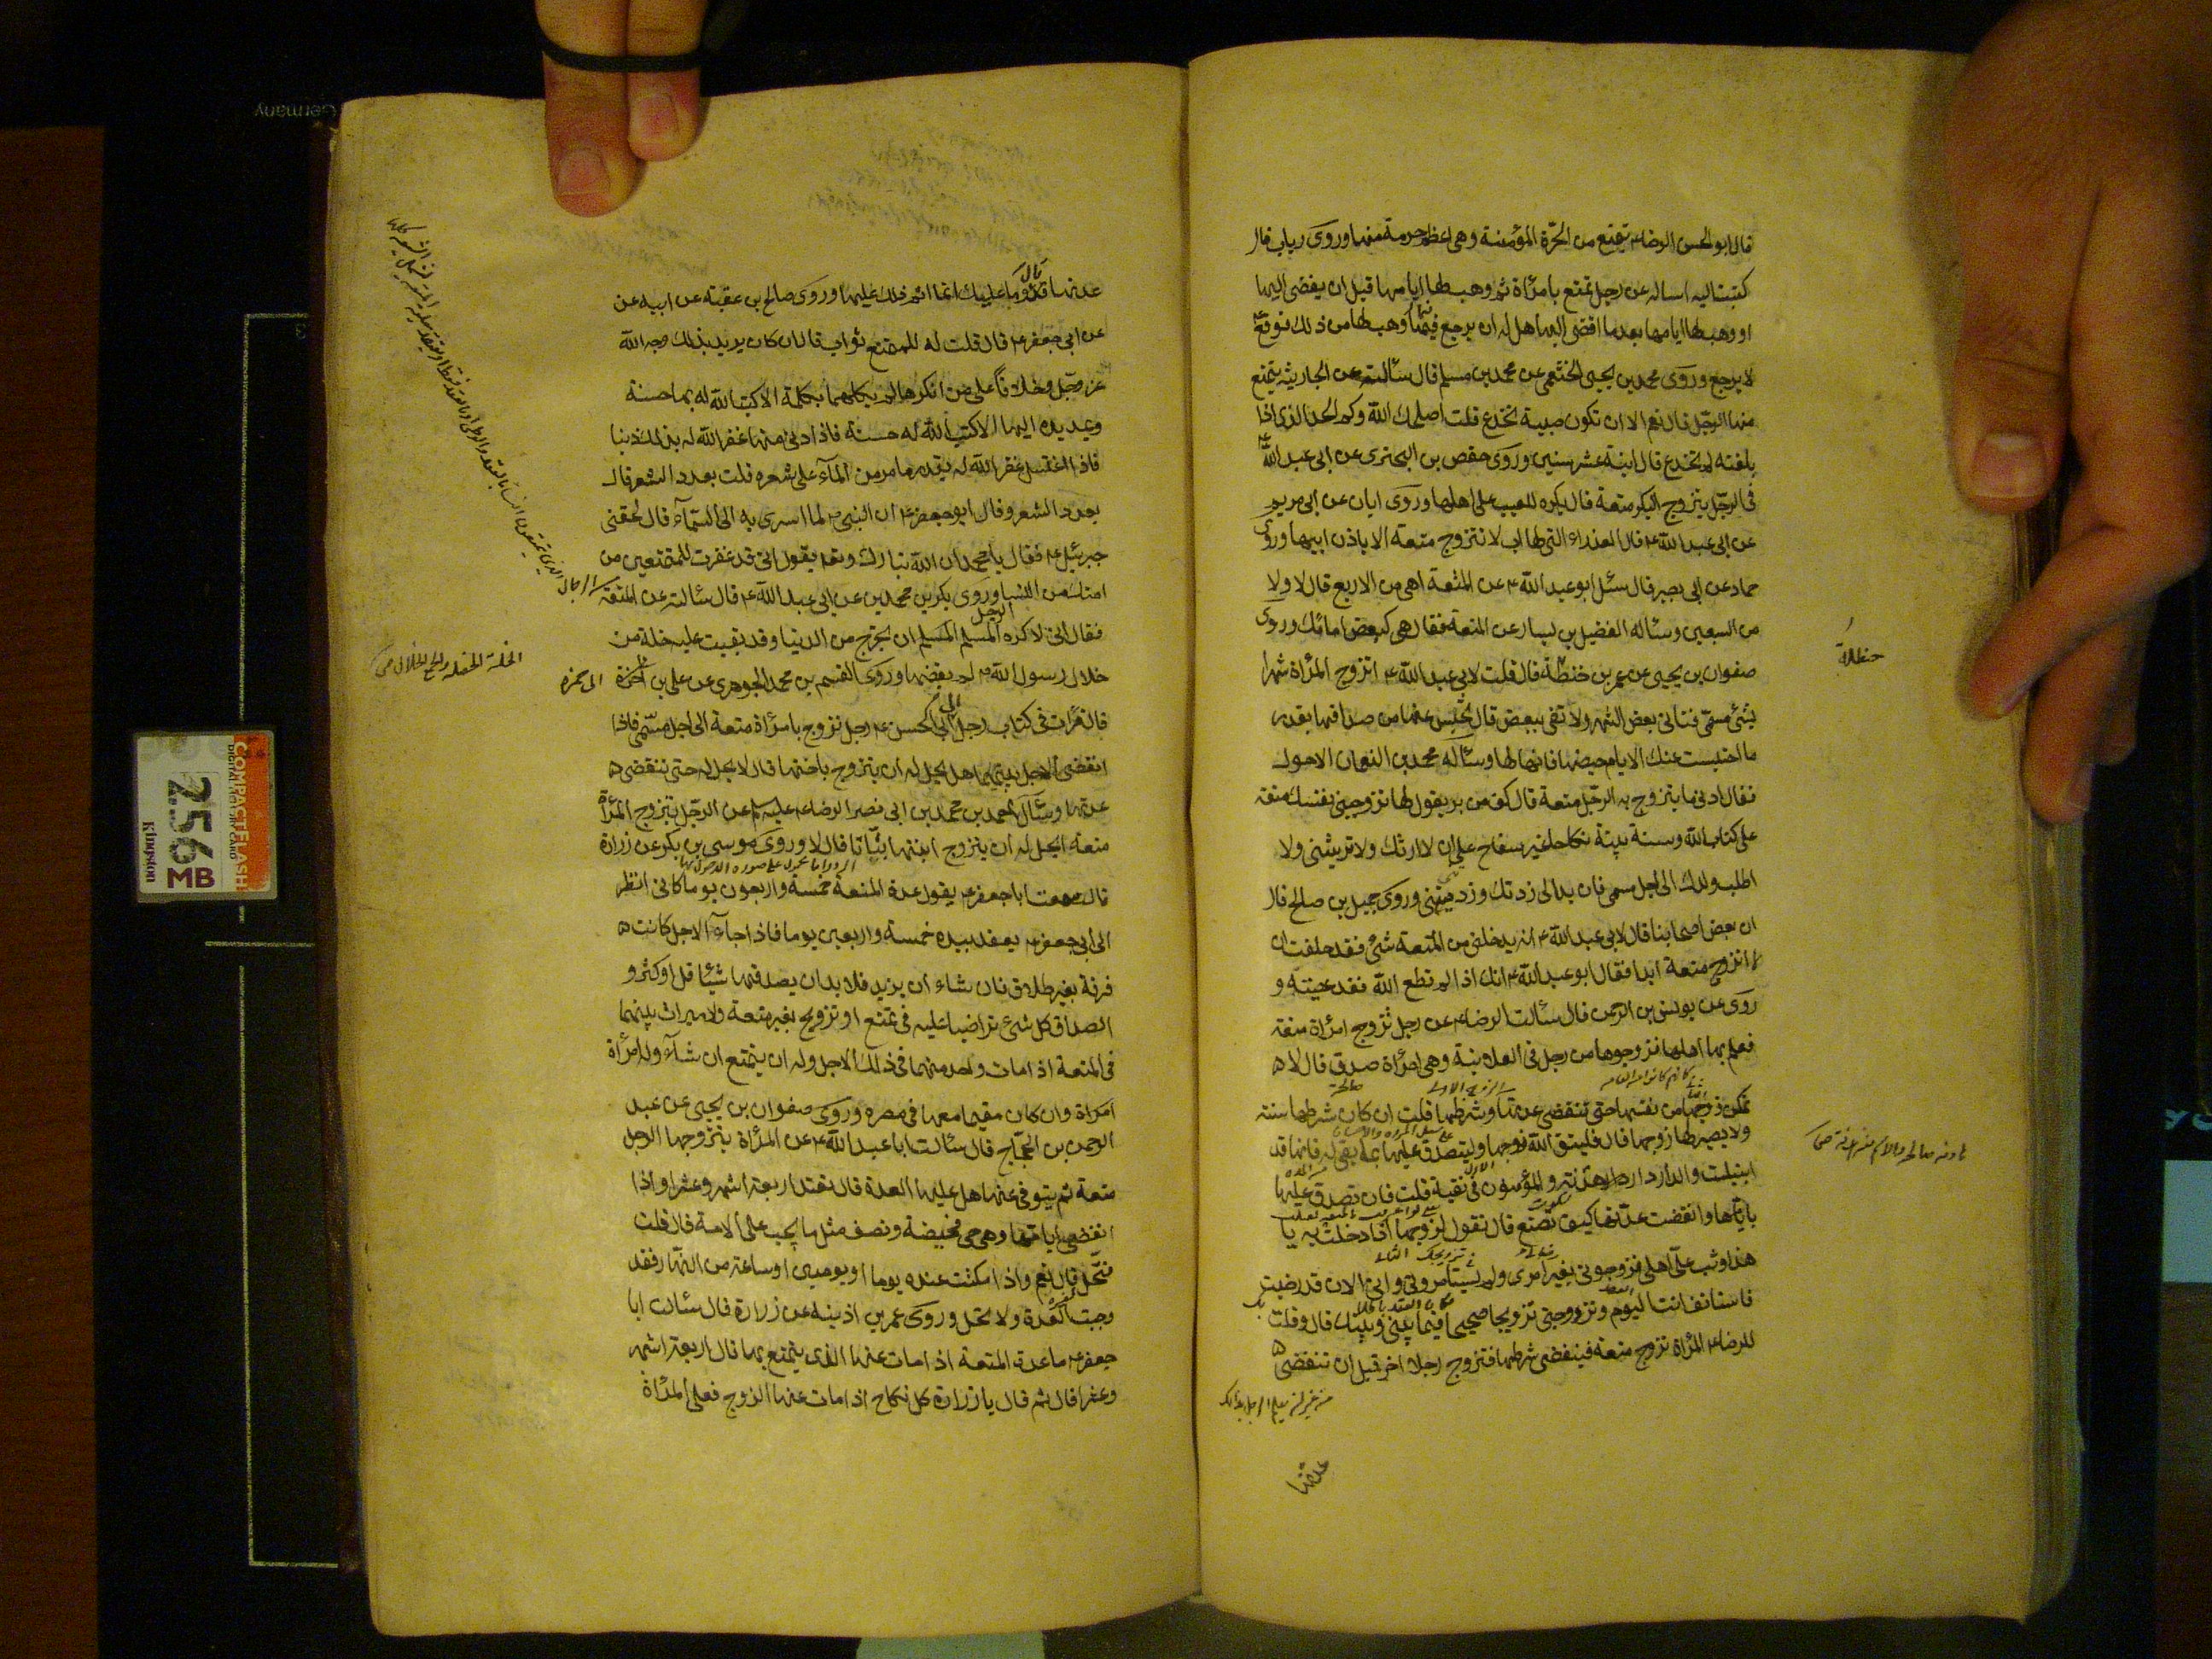 قال ابو الحسن الرضا ع يتمتع من الحرّة المؤمنة وهى اعظم حرمة منها وروى ريان قال
كتبت اليه اساله عن رجل تمتع بامرأة ثم وهب لها ايامها قبل ان يفضى اليها
او وهب لها ايامها بعد ما افضى اليها هل له ان يرجع فيما وهب لها من ذلك فوقع ع
لا يرجع وروى محمد بن يحيى الخثعمى عن محمد بن مسلم قال سألته عن الجارية يتمتع
منها الرجل قال نعم الا ان تكون صبية تخدع قلت اصلحك الله وكم الحد الذى اذا
بلغته لم تخدع قال ابنة عشر سنين وروى حفص بن البخترى عن ابى عبد الله ع
فى الرجل يتزوج البكر متعة قال يكره للعيب على اهلها وروى ابان عن ابى مريم
عن ابى عبد الله ع قال العذراء التى لها اب لا تتزوج متعة الا باذن ابيها وروى
حماد عن ابى بصير قال سئل ابو عبد الله ع عن المتعة اهى من الاربع قال لا ولا
من السبعين وسأله الفضيل بن يسار عن المتعة فقال هى كبعض امائك وروى
صفوان بن يحيى عن عمر بن حنظلة قال قلت لابى عبد الله ع اتزوج المرأة شهرا
حنظلة
بشئ مسمى فتاتى بعض الشهر ولا تفى ببعض قال تحبس عنها من صداقها بقدر
ما احتبست عنك الا ايام حيضها فانها لها وسأله محمد بن النعمان الاحول
فقال ادنى ما يتزوج به الرجل متعة قال كف من بر يقول لها تزوجينى نفسك متعة
على كتاب الله وسنة نبيه نكاحا غير سفاح على ان لا ارثك ولا ترثينى ولا
اطلب ولدك الى اجل مسمى فان بدا لى زدتك وزدتينى وروى جميل بن صالح قال
ان بعض اصحابنا قال لابى عبد الله ع انه يدخلنى من المتعة شئ فقد حلفت ان
لا اتزوج متعة ابدا فقال ابو عبد الله ع انك اذا لم تطع الله فقد عصيته و
روى عن يونس بن الرحمن قال سألت الرضا ع عن رجل تزوج امرأة متعة
فعلم بها اهلها فزوجوها من رجل فى العلانية وهى امرأة صدق قال لا
تمكن زوجها من نفسها حتى تنقضى عدتها وشرطها قلت ان كان شرطها سنة
ولا يصبر لها زوجها قال فليتق الله زوجها وليتصدق عليها بما بقى له فانها قد
ابتليت والدار دار هدنة والمؤمنون فى تقية قلت فان تصدق عليها
بايامها وانقضت عدتها كيف تصنع قال تقول لزوجها اذا دخلت به يا
هذا وثب على اهلى فزوجونى بغير امرى ولم يستأمرونى وانى الان قد رضيت
فاستانف انت اليوم وتزوجنى تزويجا صحيحا فيما بينى وبينك قال وقلت
للرضا ع المرأة تزوج متعة فينقضى شرطها فتزوج رجلا اخر قبل ان تنقضى
من غير ان يعلم الرجل بذلك
عدتها
عدتها قال وما عليك انما اثم ذلك عليها وروى صالح بن عقبة عن ابيه عن
عن ابى جعفر ع قال قلت له للمتمتع ثواب قال ان كان يريد بذلك وجه الله
عز وجل وخلافا على من انكرها لم يكلمها بكلمة الا كتب الله له بها حسنة
وعد يده اليها الا كتب الله له حسنة فاذا دنى منها غفر الله له بذلك ذنبا
فاذا اغتسل غفر الله له بقدر ما مر من الماء على شعره قلت بعدد الشعر قال
بعدد الشعر وقال ابو جعفر ع ان النبى ص لما اسرى به الى السماء قال لحقنى
جبرئيل ع فقال يا محمد ان الله تبارك وتعا يقول انى قد غفرت للمتمتعين من
امتك من النساء وروى بكر بن محمد بن عن ابى عبد الله ع قال سألته عن المتعة
فقال انى لاكره للرجل المسلم ان يخرج من الدنيا وقد بقيت عليه خلة من
خلال رسول الله ص لم يقضها وروى القسم بن محمد الجوهرى عن على بن ابى حمزة
قال قرأت فى كتاب رجل الى ابى الحسن ع رجل تزوج بامرأة متعة الى اجل مسمى فاذا
انقضى الاجل بينهما هل يحل له ان يتزوج باختها قال لا يحل له حتى تنقضى
عدتها وسأل احمد بن محمد بن ابى نصر الرضا عليه سلم عن الرجل يتزوج المرأة
متعة ايحل له ان يتزوج ابنتها بتاتا قال لا وروى موسى بن بكر عن زرارة
قال سمعت ابا جعفر ع يقول عدة المتعة خمسة واربعون يوما كانى انظر
الى ابى جعفر ع يعقد بيده خمسة واربعين يوما فاذا جاء الاجل كانت
فرقة بغير طلاق فان شاء ان يزيد فلا بد ان يصدقها شيئا قل او كثر و
الصداق كل شئ تراضيا عليه فى تمتع او تزويج بغير متعة ولا ميراث بينهما
فى المتعة اذا مات واحد منهما فى ذلك الاجل وله ان يتمتع ان شاء وله امرأة
امرأة وان كان مقيما معها فى مصره وروى صفوان بن يحيى عن عبد
الرحمن بن الحجاج قال سألت ابا عبد الله ع عن المرأة يتزوجها الرجل
متعة ثم يتوفى عنها هل عليها العدة قال تعتد اربعة اشهر وعشرا واذا
انقضت ايامها وهى حى فحيضة ونصف مثل ما يجب على الامة قال قلت
فتحل قال نعم واذا مكثت عنده يوما او يومين او ساعة من النهار فقد
وجبت العدة ولا تحل وروى عمر بن اذينه عن زرارة قال سألت ابا
جعفر ع ما عدة المتعة اذا مات عنها الذى يتمتع بها قال اربعة اشهر
وعشرا قال ثم قال يا زرارة كل نكاح اذا مات عنها الزوج فعلى المرأة
Germany
COMPACTFLASH
256
MB
Kingston